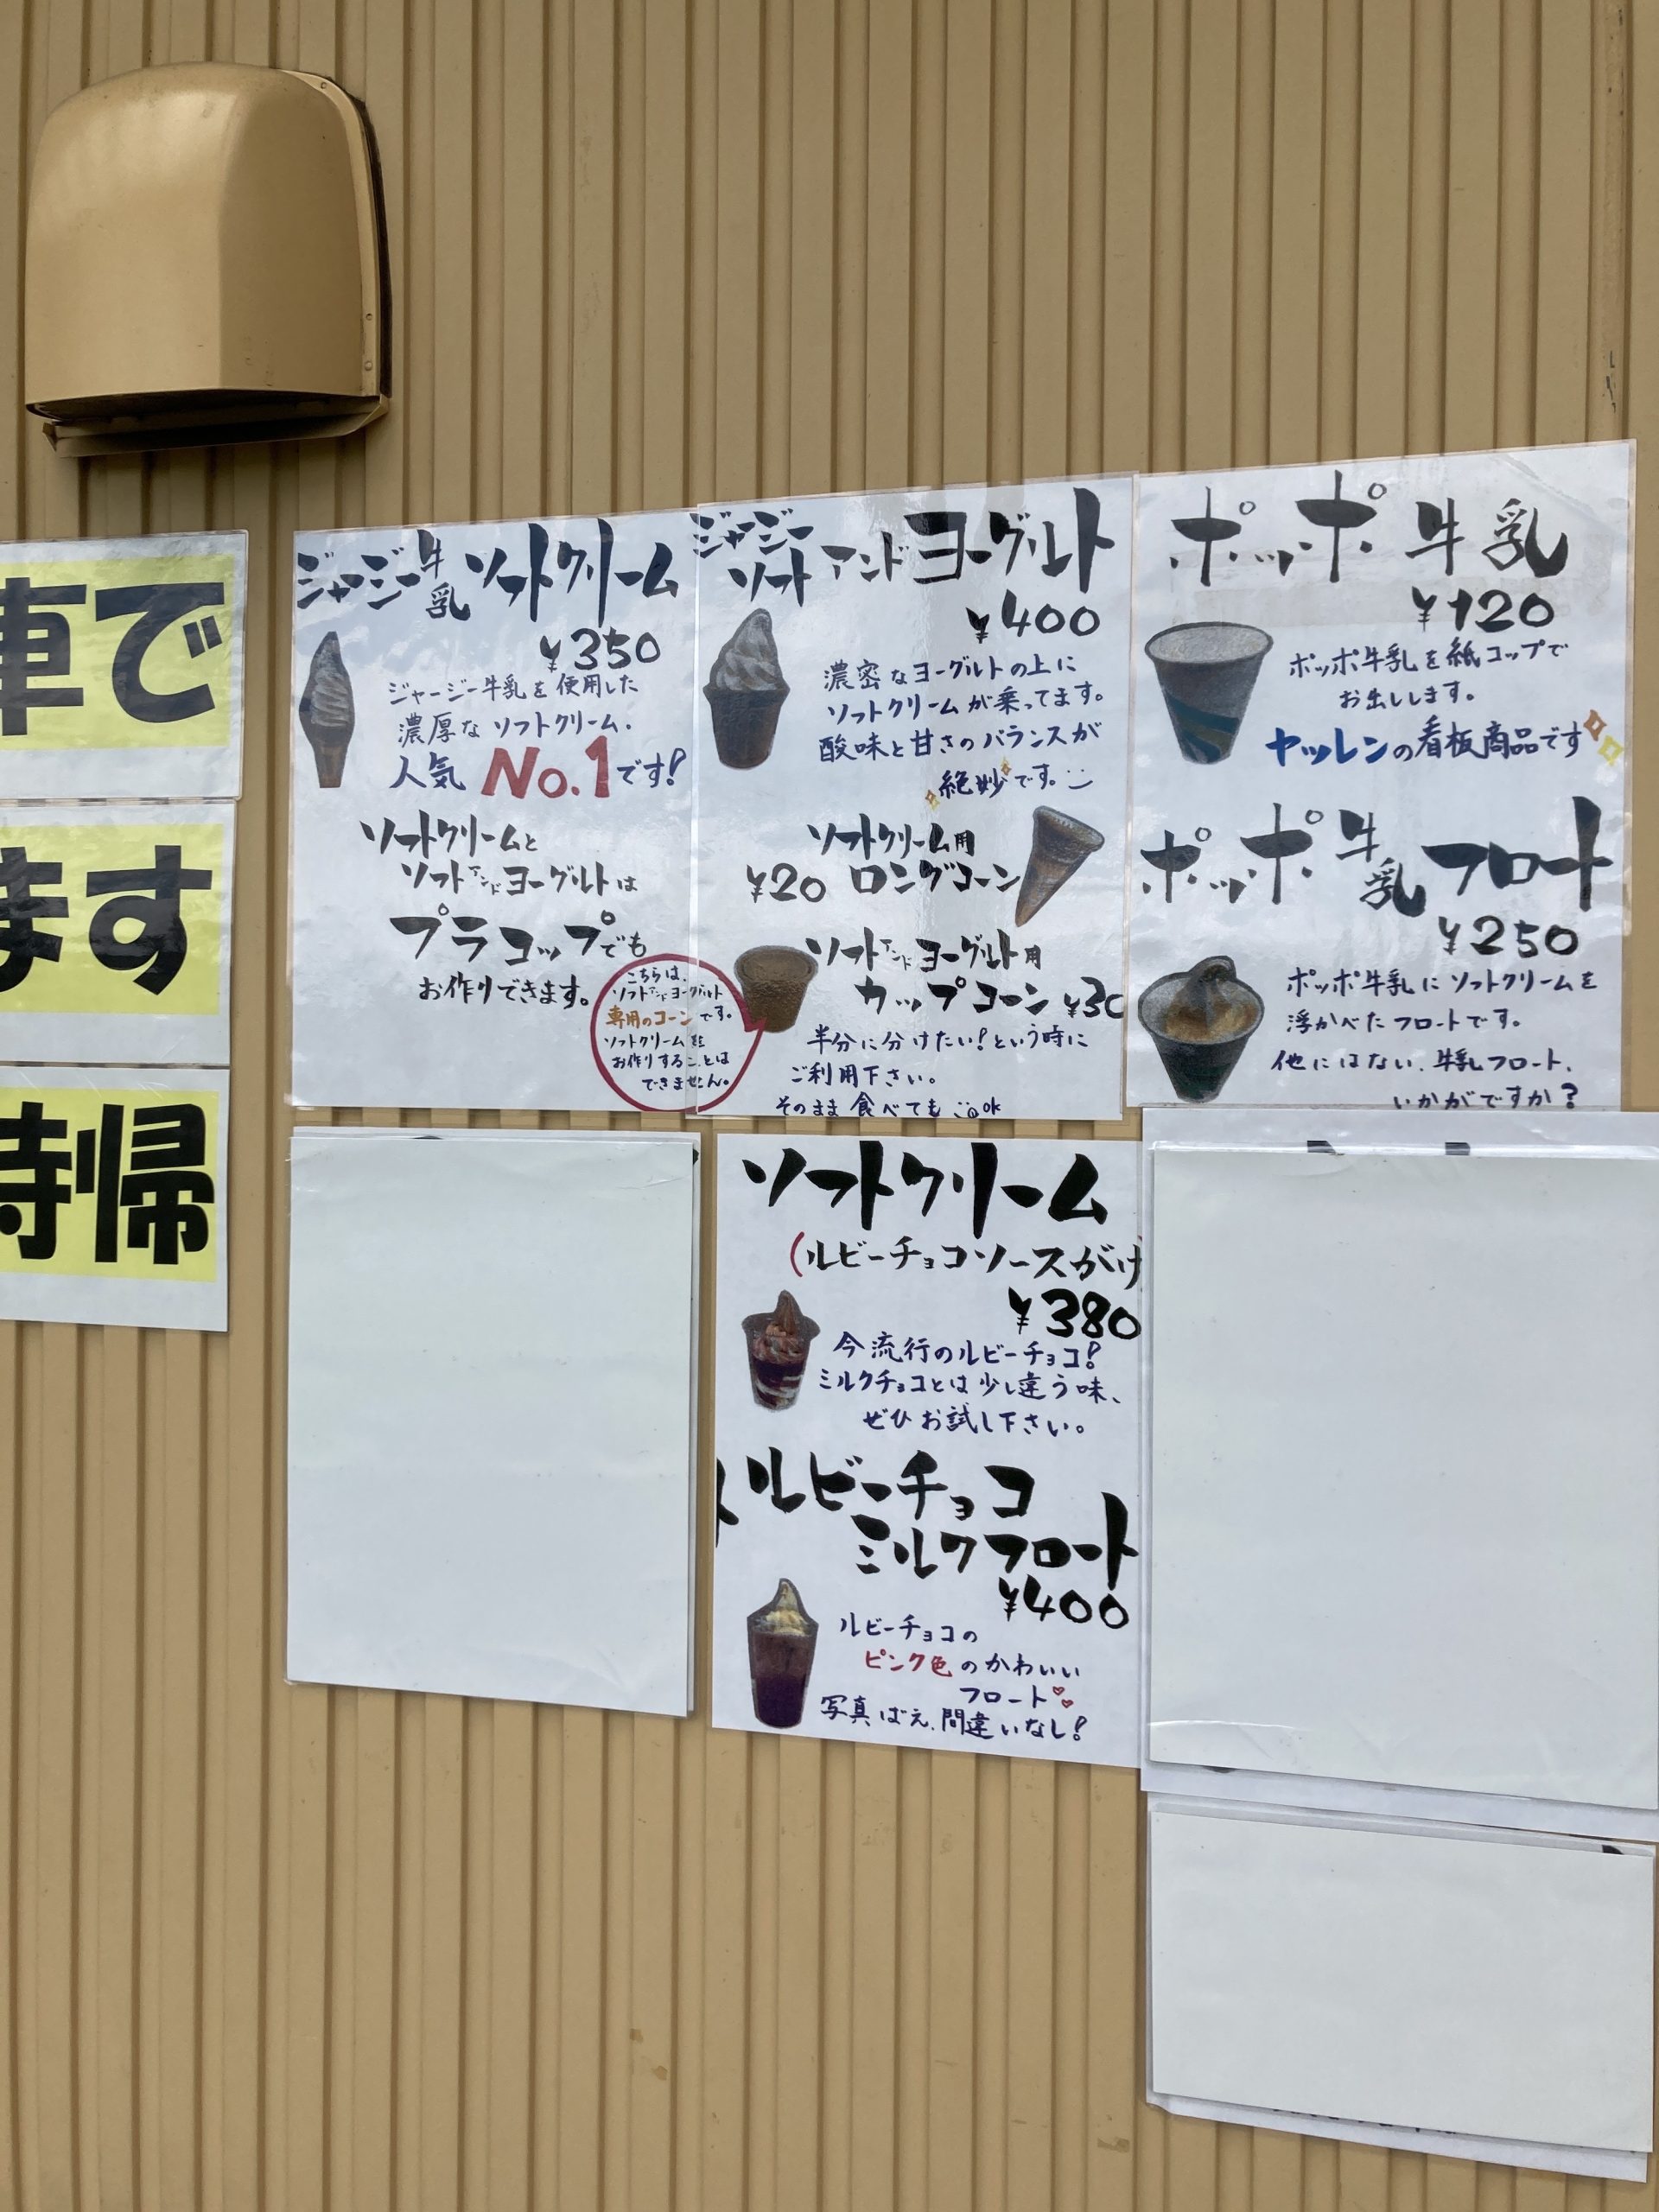 車で
ます
時帰
ジャージー牛乳ソフトクリーム
¥350
ジャージー牛乳を使用した
濃厚なソフトクリーム.
人気 No.1です!
ソフトクリームと
ソフトアンドヨーグルトは
プラコップでも
お作りできます。
こちらは、
ソフトアンドヨーグルト
専用のコーンです。
ソフトクリームを
お作りすることは
できません。
ジャージーソフトアンドヨーグルト
¥400
濃密なヨーグルトの上に
ソフトクリームが乗ってます。
酸味と甘さのバランスが
絶妙です。
ソフトクリーム用
¥20 ロングコーン
ソフトアンドヨーグルト用
カップコーン ¥30
半分に分けたい!という時に
ご利用下さい。
そのまま食べてもok
ポッポ牛乳
¥120
ポッポ牛乳を紙コップで
お出しします。
ヤッレンの看板商品です
ポッポ牛乳フロート
¥250
ポッポ牛乳にソフトクリームを
浮かべたフロートです。
他にはない、牛乳フロート、
いかがですか?
ソフトクリーム
(ルビーチョコソースがけ
¥380
今流行のルビーチョコ!
ミルクチョコとは少し違う味、
ぜひお試し下さい。
ルビーチョコ
ミルクフロート
¥400
ルビーチョコの
ピンク色のかわいい
フロート
写真ばえ、間違いなし!